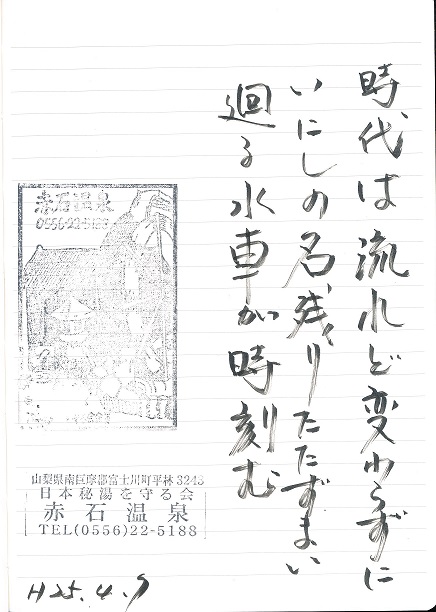 時代は流れど変わらずに
いにしの名残りたたずまい
廻る水車が時刻む
赤石温泉
0556-22-5188
山梨県南巨摩郡富士川町平林3243
日本秘湯を守る会
赤石温泉
TEL(0556)22-5188
H25.4.9